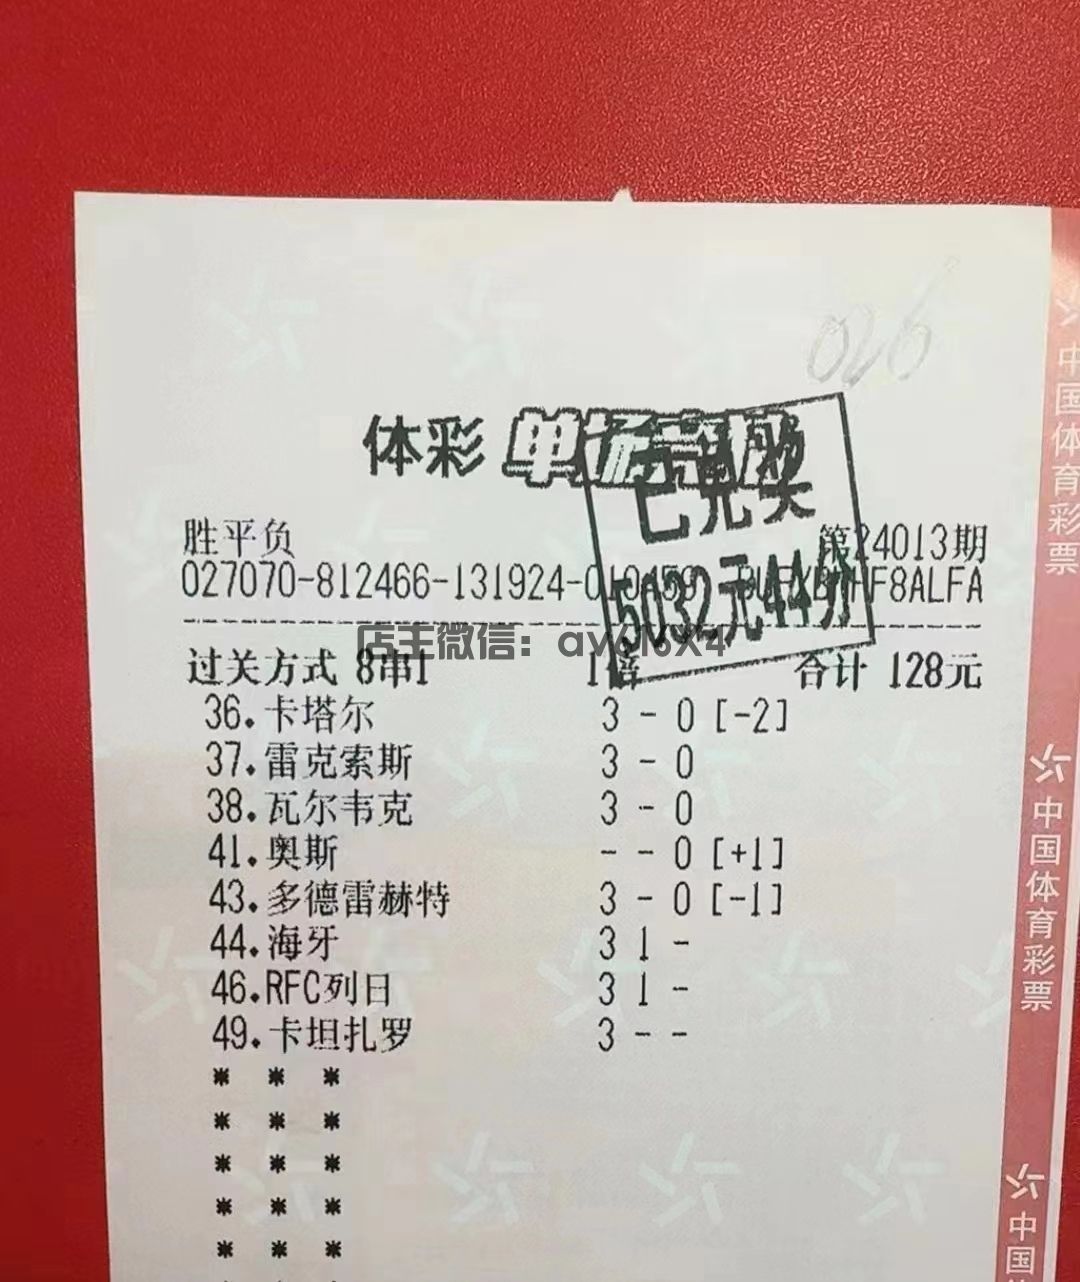 026
体彩 单场竞猜
已兑奖
胜平负 第24013期
027070-812466-131924-010459 F8ALFA
5032元44分
店主微信：
过关方式 8串1 1倍 合计 128元
36.卡塔尔 3 - 0 [-2]
37.雷克索斯 3 - 0
38.瓦尔韦克 3 - 0
41.奥斯 - - 0 [+1]
43.多德雷赫特 3 - 0 [-1]
44.海牙 3 1 -
46.RFC列日 3 1 -
49.卡坦扎罗 3 - -
* * *
* * *
* * *
* * *
* * *
中国体育彩票
中国体育彩票
中国